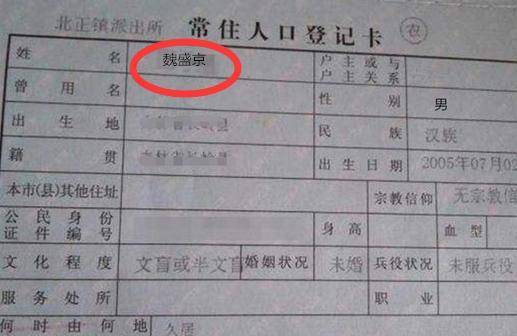 北正镇派出所 常住人口登记卡 农
姓名 魏盛京 户主或与户主关系
曾用名 性别 男
出生地 县 民族 汉族
籍贯 吉林省 县 出生日期 2005年07月02
本市(县)其他住址 宗教信仰 无宗教信
公民身份证件编号 身高 血型
文化程度 文盲或半文盲 婚姻状况 未婚 兵役状况 未服兵役
服务处所 职业
何时由何地 久居